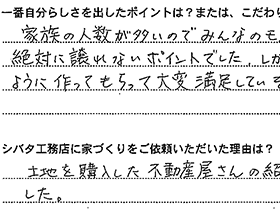 一番自分らしさを出したポイントは？または、こだわ
家族の人数が多いのでみんなのモ
絶対に譲れないポイントでした。しか
ように作ってもらって大変満足してい
シバタ工務店に家づくりをご依頼いただいた理由は？
土地を購入した不動産屋さんの紹
した。